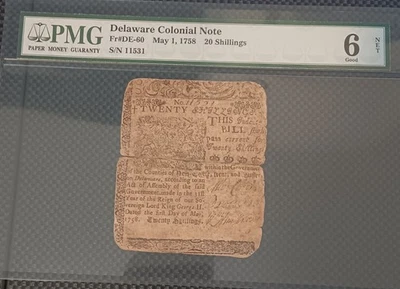 PMG
PAPER MONEY GUARANTY
Delaware Colonial Note
Fr#DE-60 May 1, 1758 20 Shillings
S/N 11531
6
NET
Good
No. 11531
TWENTY
THIS
BILL
pass current
Twenty Shillings
within the Government
of the Counties of
on Delaware, according to an
Act of Assembly of the said
Government, made in the
Year of the Reign of our So-
vereign Lord King George II.
Dated the 1st Day of May,
1758. Twenty Shillings.